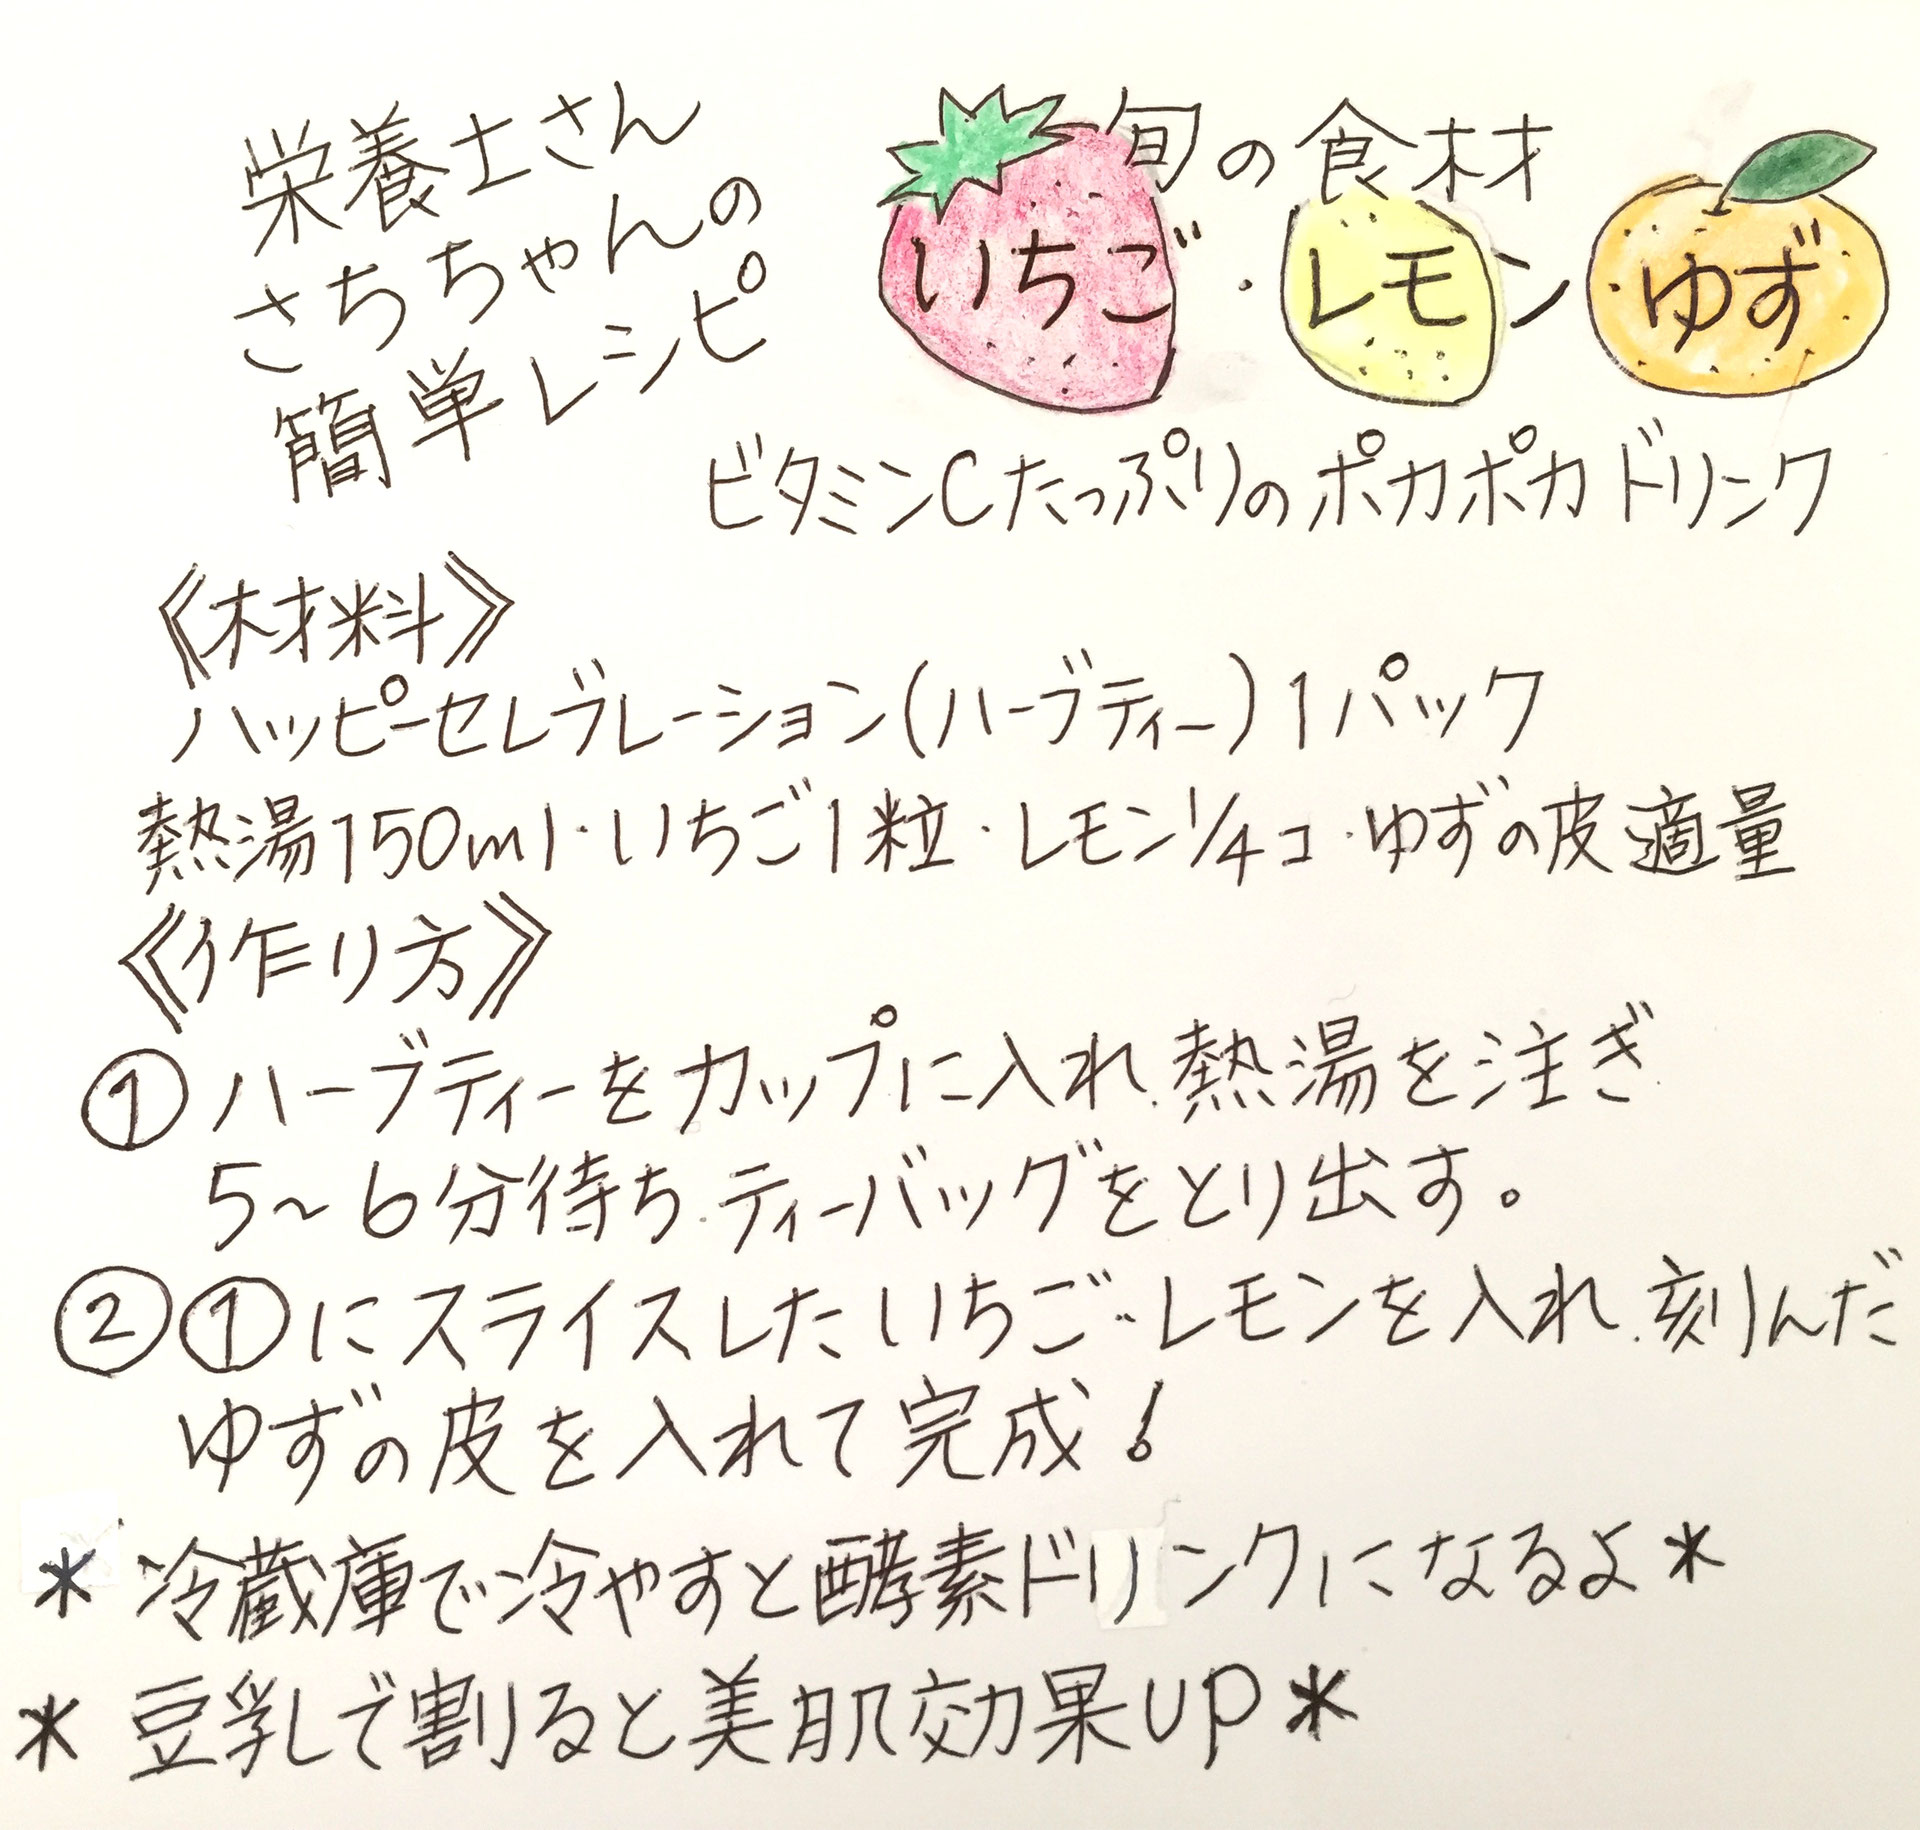 栄養士さん
さちちゃんの
簡単レシピ
旬の食材
いちご・レモン・ゆず
ビタミンCたっぷりのポカポカドリンク
《材料》
ハッピーセレブレーション(ハーブティー)1パック
熱湯150ml・いちご1粒・レモン1/4コ・ゆずの皮適量
《作り方》
①ハーブティーをカップに入れ、熱湯を注ぎ
5~6分待ち、ティーバッグをとり出す。
②①にスライスしたいちご・レモンを入れ、刻んだ
ゆずの皮を入れて完成!
*冷蔵庫で冷やすと酵素ドリンクになるよ*
*豆乳で割ると美肌効果UP*